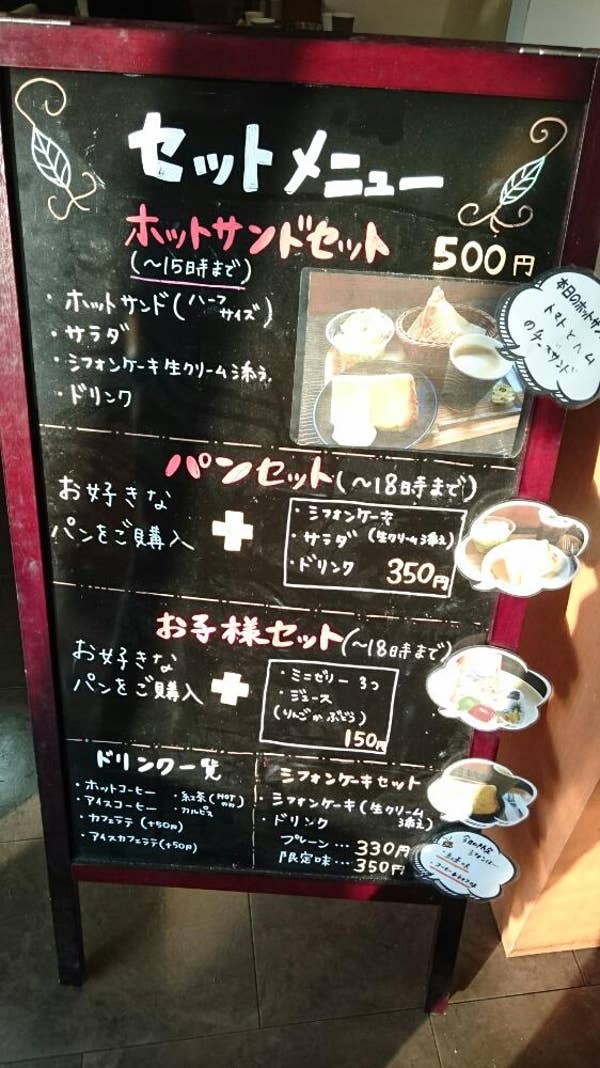 セットメニュー
ホットサンドセット 500円
(〜15時まで)
・ホットサンド(ハーフサイズ)
・サラダ
・シフォンケーキ生クリーム添え
・ドリンク
本日のホットサンド
トマトとハム
のチーズサンド
パンセット(〜18時まで)
お好きな
パンをご購入
+
・シフォンケーキ
(生クリーム添え)
・サラダ
・ドリンク 350円
お子様セット(〜18時まで)
お好きな
パンをご購入
+
・ミニゼリー 3つ
・ジュース
(りんごorぶどう)
150円
ドリンク一覧
・ホットコーヒー
・アイスコーヒー
・カフェラテ (+50円)
・アイスカフェラテ(+50円)
・紅茶(HOT
・カルピス
シフォンケーキセット
・シフォンケーキ(生クリーム添え)
・ドリンク
プレーン…330円
限定味…350円